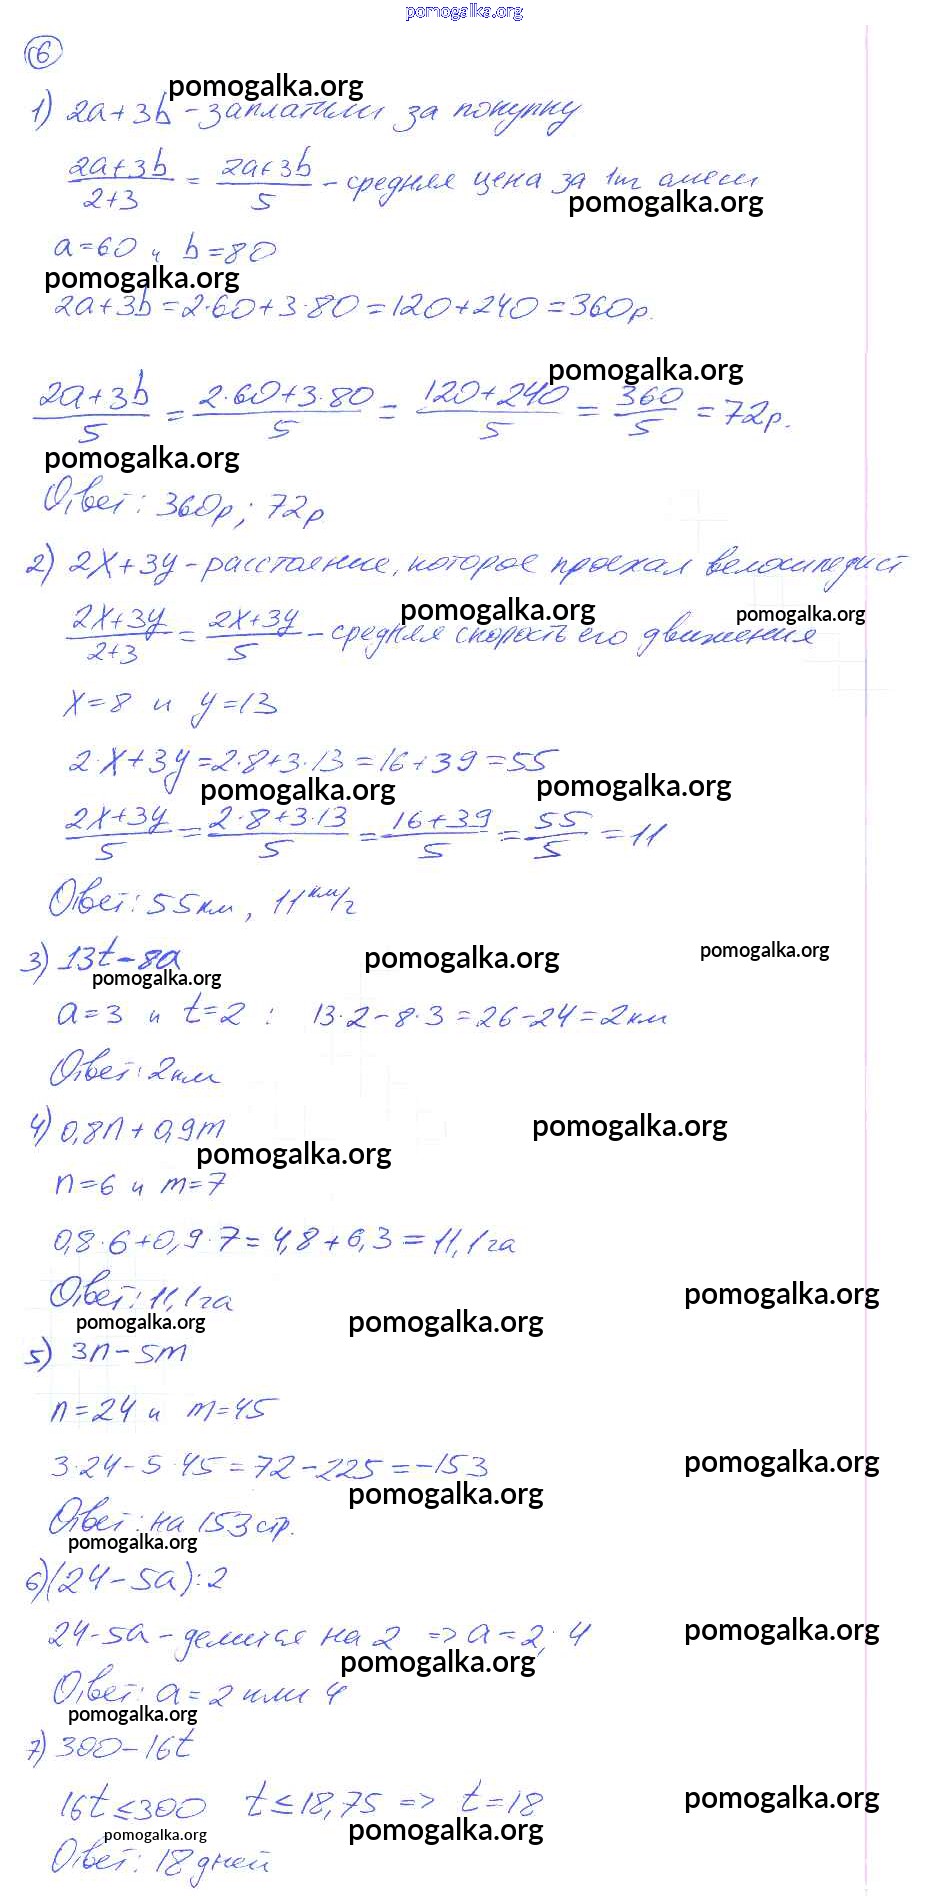 pomogalka.org
6
pomogalka.org
1) 2a+3b - заплатили за покупку
2a+3b/2+3 = 2a+3b/5 - средняя цена за 1кг смеси
pomogalka.org
a=60 и b=80
pomogalka.org
2a+3b=2·60+3·80=120+240=360р.
pomogalka.org
2a+3b/5 = 2·60+3·80/5 = 120+240/5 = 360/5 = 72р.
pomogalka.org
Ответ: 360р; 72р
2) 2x+3y - расстояние, которое проехал велосипедист
pomogalka.org pomogalka.org
2x+3y/2+3 = 2x+3y/5 - средняя скорость его движения
x=8 и y=13
2·x+3y=2·8+3·13=16+39=55
pomogalka.org pomogalka.org
2x+3y/5 = 2·8+3·13/5 = 16+39/5 = 55/5 = 11
Ответ: 55км, 11км/г
3) 13t-8a
pomogalka.org pomogalka.org pomogalka.org
a=3 и t=2 : 13·2-8·3=26-24=2км
Ответ: 2км
4) 0,8n+0,9m
pomogalka.org pomogalka.org
n=6 и m=7
0,8·6+0,9·7=4,8+6,3=11,1га
Ответ: 11,1га
pomogalka.org pomogalka.org pomogalka.org
5) 3n-5m
n=24 и m=45
3·24-5·45=72-225=-153
pomogalka.org pomogalka.org
Ответ: на 153стр.
pomogalka.org
6) (24-5a):2
24-5a - делится на 2 => a=2; 4
pomogalka.org pomogalka.org
Ответ: a=2 или 4
pomogalka.org
7) 300-16t
16t≤300 t≤18,75 => t=18
pomogalka.org pomogalka.org pomogalka.org
Ответ: 18 дней